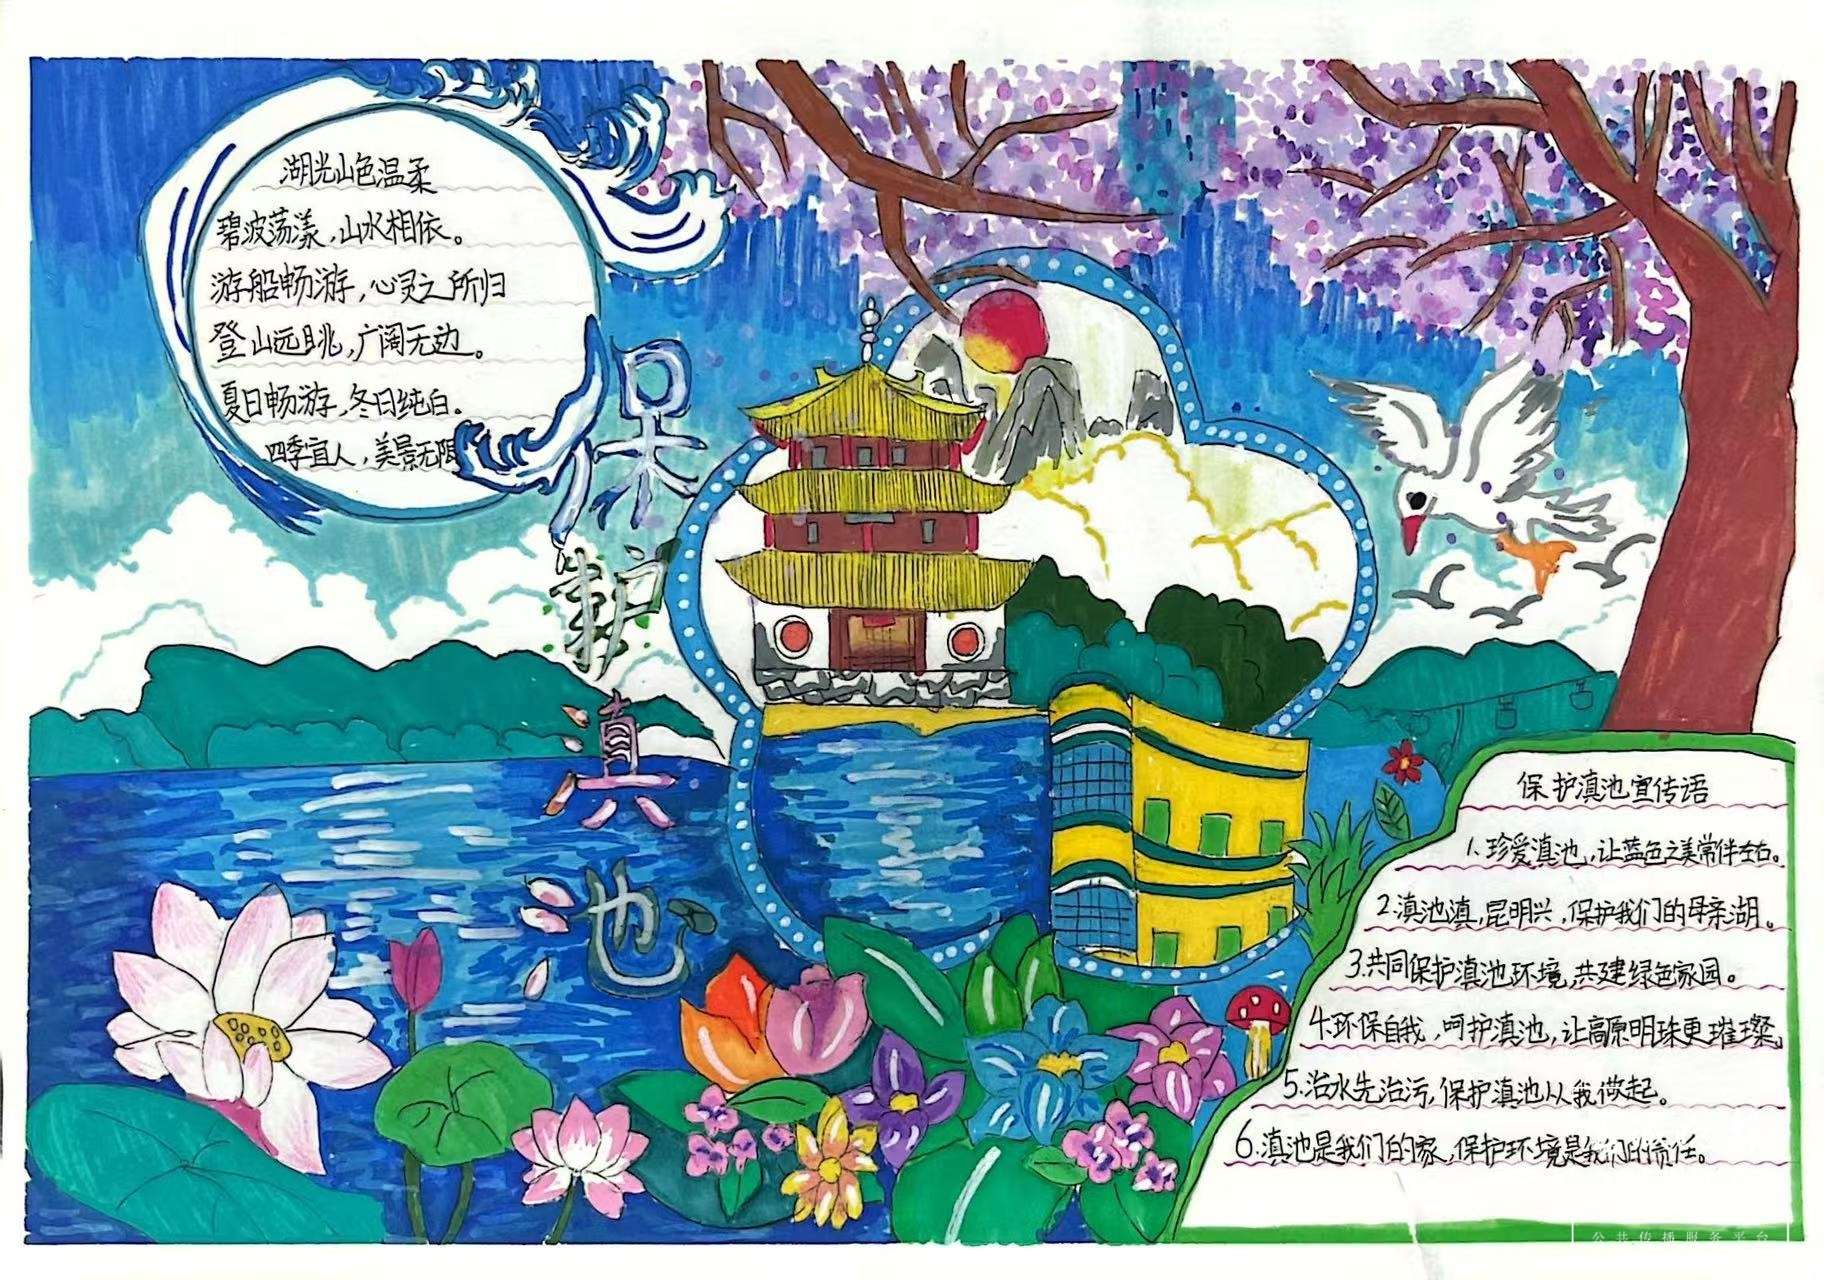 湖光山色温柔
碧波荡漾,山水相依。
游船畅游,心灵之所归
登山远眺,广阔无边。
夏日畅游,冬日纯白。
四季宜人,美景无限
保护滇池
保护滇池宣传语
1、珍爱滇池,让蓝色之美常伴左右。
2.滇池滇,昆明兴,保护我们的母亲湖。
3.共同保护滇池环境,共建绿色家园。
4.环保自我,呵护滇池,让高原明珠更璀璨。
5.治水先治污,保护滇池从我做起。
6.滇池是我们的家,保护环境是我们的责任。
公共传播服务平台